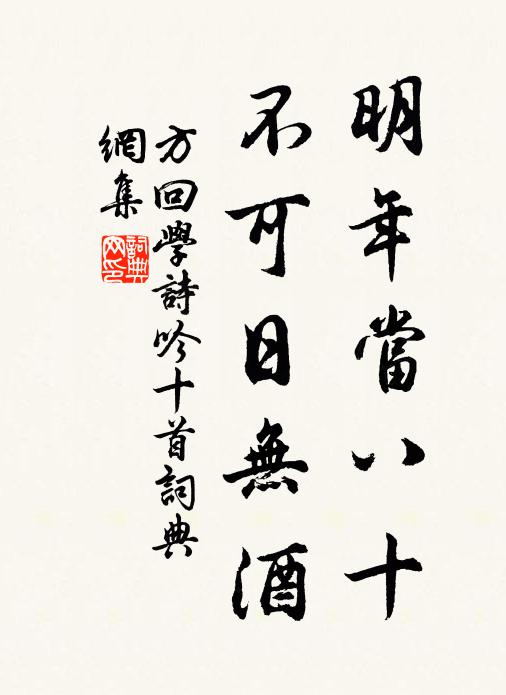 明年當八十
不可日無酒
方回學詩吟十首詞典
網集
詞典網印